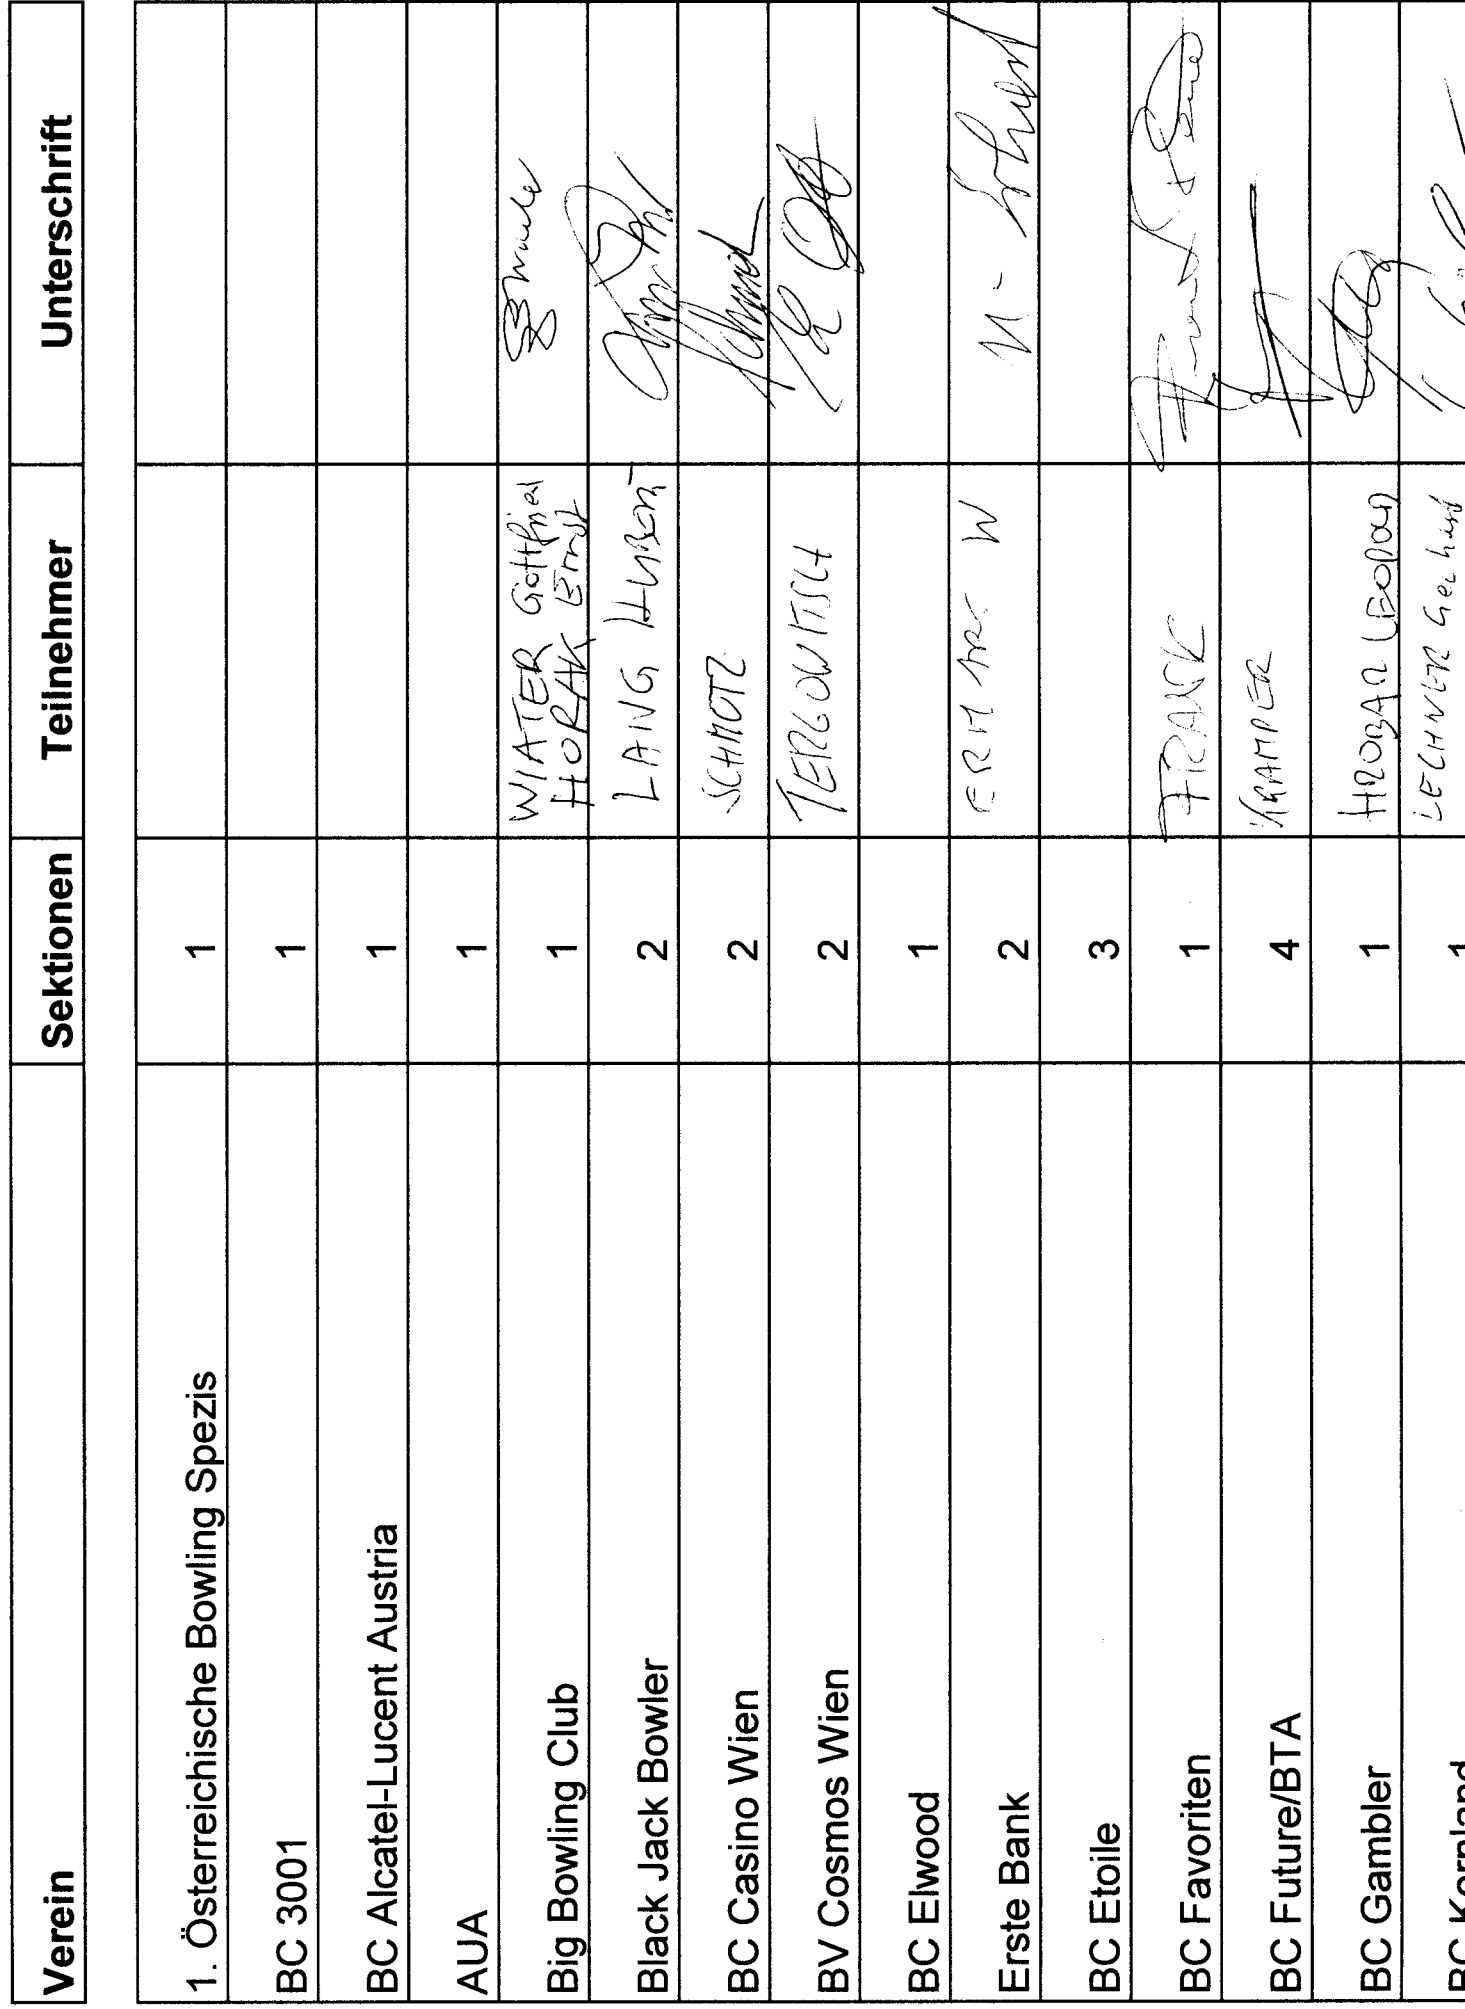 Verein Sektionen Teilnehmer Unterschrift
1. Österreichische Bowling Spezis 1
BC 3001 1
BC Alcatel-Lucent Austria 1
AUA 1
Big Bowling Club 1 WIATER Gottfried
HORAK Ernst
Black Jack Bowler 2 LANG Hubert
BC Casino Wien 2 SCHMOTZ
BV Cosmos Wien 2 TERGOWITSCH
BC Elwood 1
Erste Bank 2 W
BC Etoile 3
BC Favoriten 1 FRANK
BC Future/BTA 4 KRAMPER
BC Gambler 1 LEOPOLD
BC Kornland 1 LECHNER Gerhard